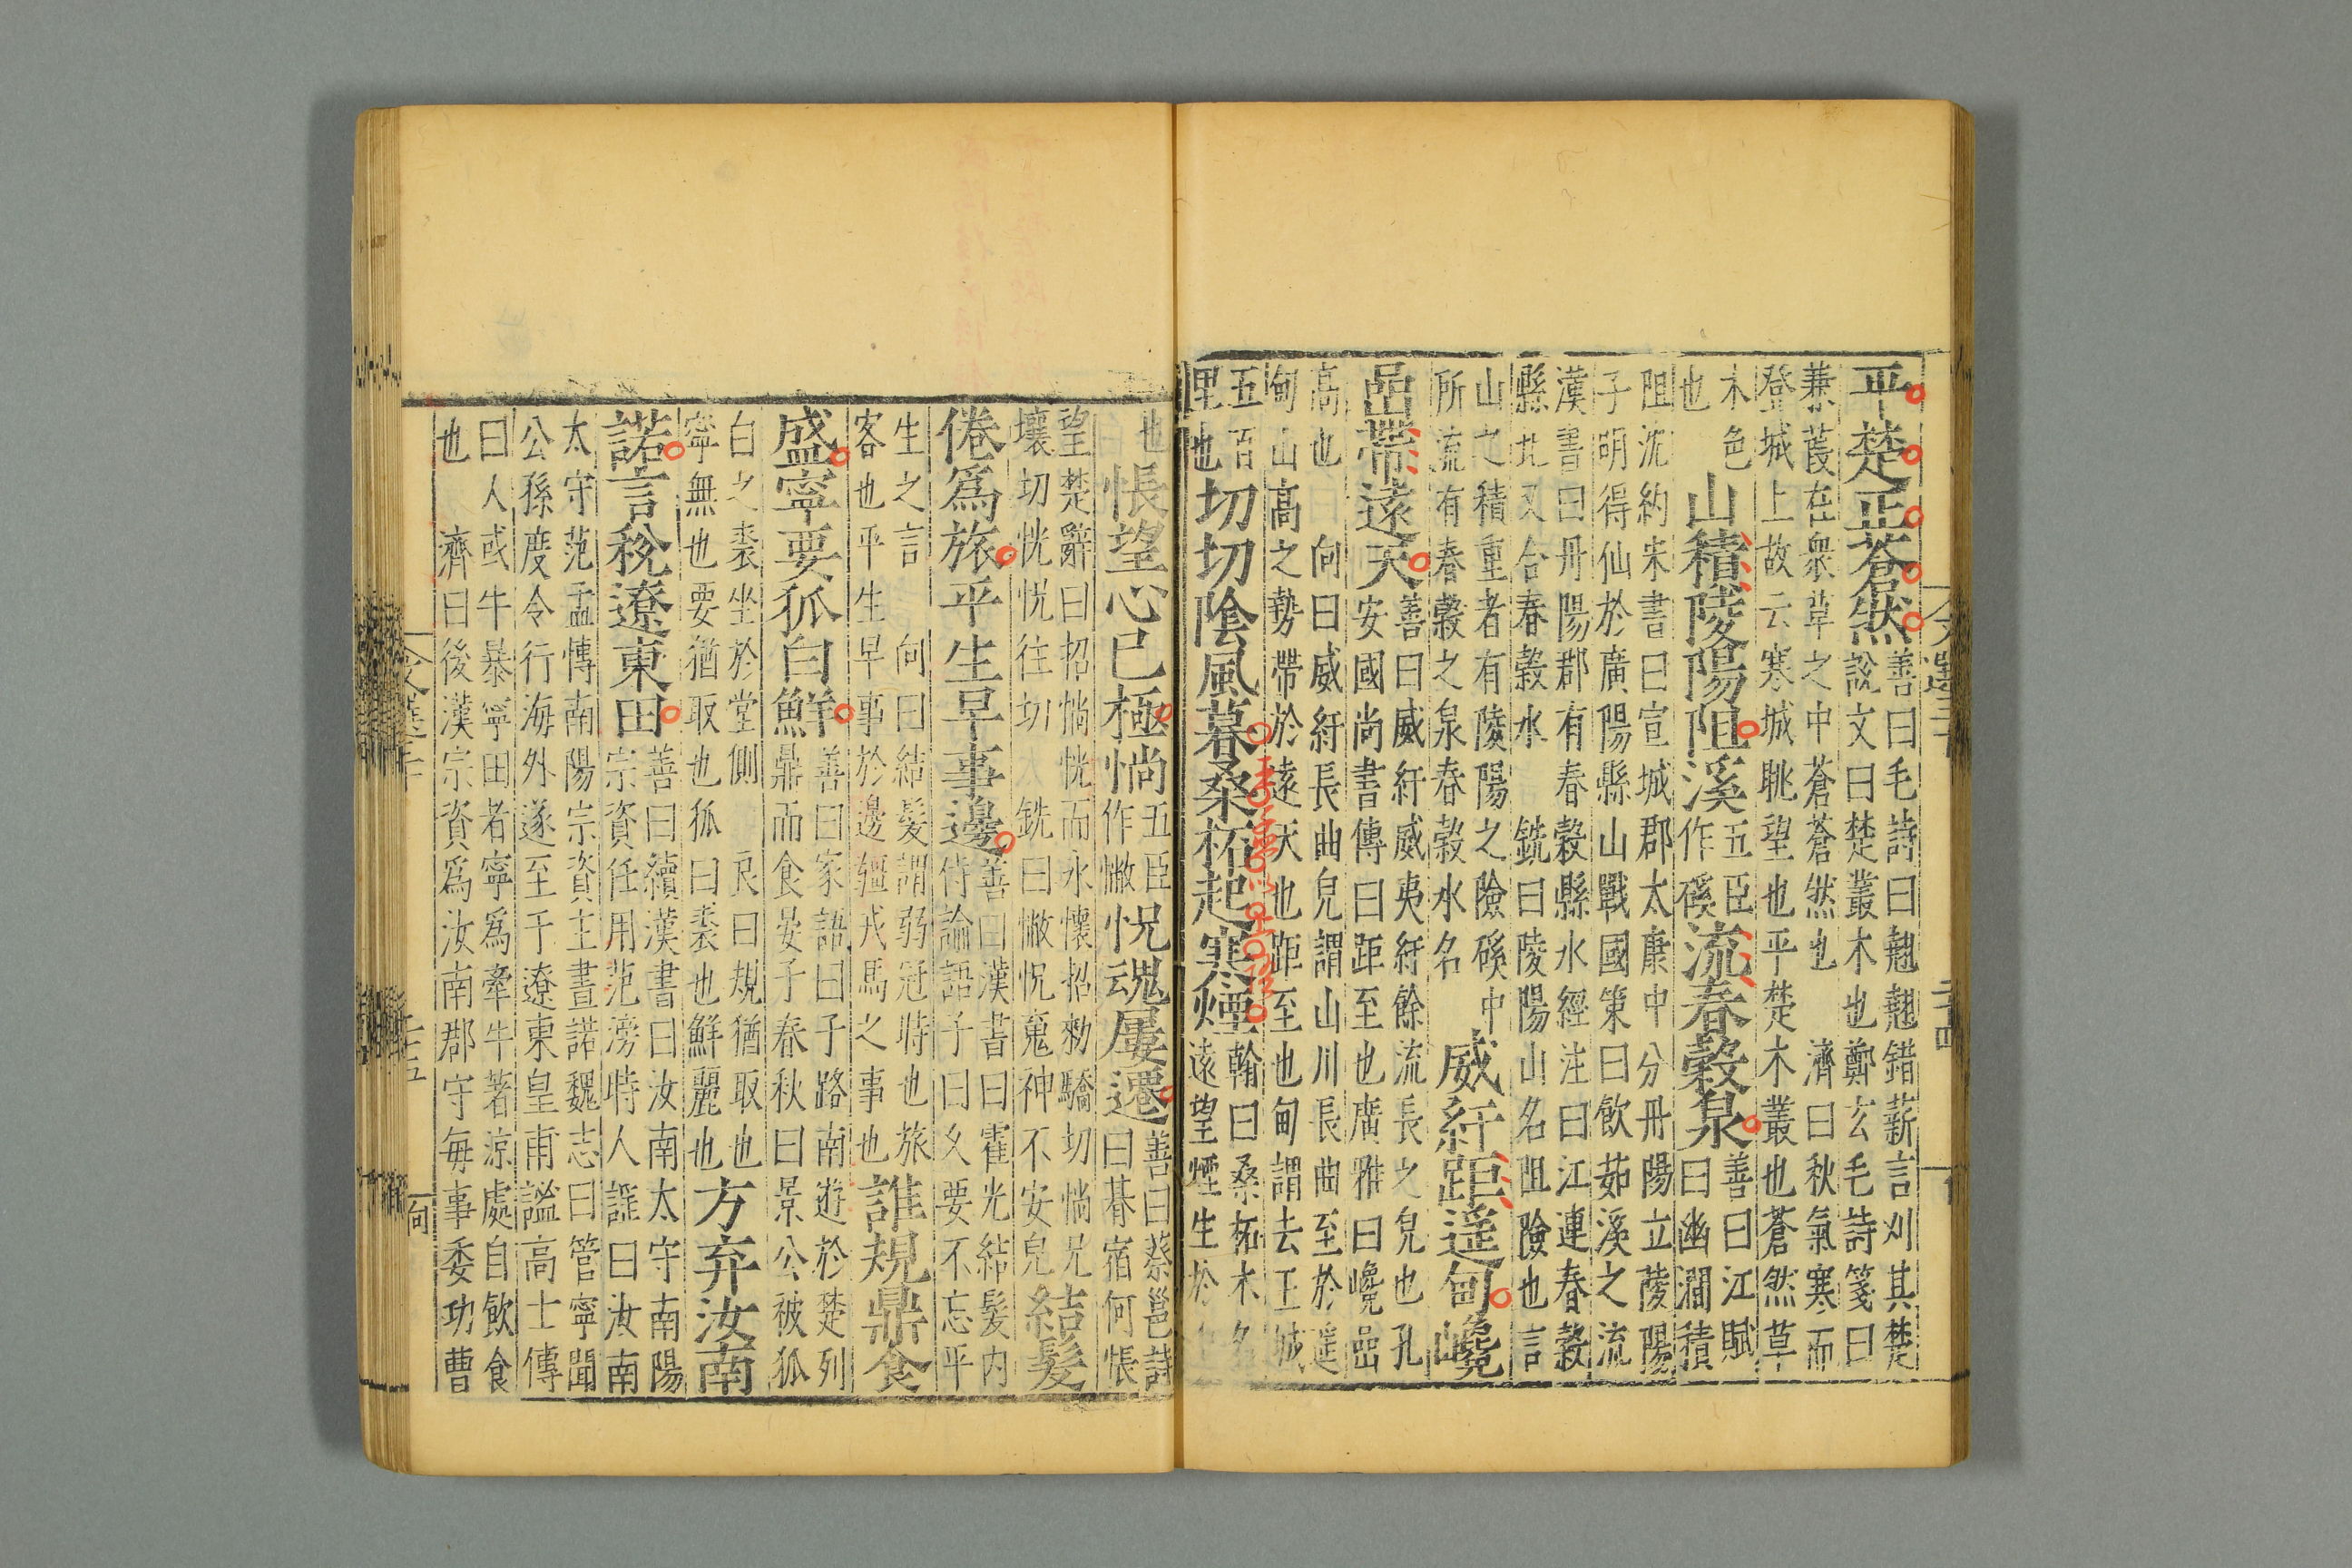 平楚正蒼然善曰毛詩曰翹翹錯薪言刈其楚
說文曰楚叢木也鄭玄毛詩箋曰
蒹葭在衆草之中蒼蒼然也 濟曰秋氣寒而
登城上故云寒城眺望也平楚木叢也蒼然草
木色
也
山積陵陽阻溪五臣
作磎
流春穀泉善曰江賦
曰幽澗積
阻沈約宋書曰宣城郡太康中分丹陽立陵陽
子明得仙於廣陽縣山戰國策曰飲茹溪之流
漢書曰丹陽郡有春穀縣水經注曰江連春穀
縣北又合春穀水 銑曰陵陽山名阻險也言
山之積重者有陵陽之險磎中
所流有春穀之泉春穀水名
威紆距遥甸巉
嵒帶遠天善曰威紆威夷紆餘流長之皃也孔
安國尚書傳曰距至也廣雅曰巉嵒
高也 向曰威紆長曲皃謂山川長曲至於遥
甸山高之勢帶於遠天也距至也甸謂去王城
五百
里也
切切陰風暮桑柘起寒煙翰曰桑柘木名
遠望煙生於
也
悵望心已極惝五臣
作憮
怳魂屢遷善曰蔡邕詩
曰暮宿何悵
望楚辭曰招惝恍而永懷招勑驕切惝兄
壤切恍怳往切 銑曰憮怳䰟神不安皃
結髮
倦爲旅平生早事邊善曰漢書曰霍光結髮内
侍論語子曰久要不忘平
生之言 向曰結髮謂弱冠時也旅
客也平生早事於邊疆戎馬之事也
誰規鼎食
盛寧要狐白鮮善曰家語曰子路南遊於楚列
鼎而食晏子春秋曰景公被狐
白之裘坐於堂側 良曰規猶取也
寧無也要猶取也狐曰裘也鮮麗也
方弃汝南
諾言稅遼東田善曰續漢書曰汝南太守南陽
宗資任用范滂時人謡曰汝南
太守范孟愽南陽宗資主畫諾魏志曰管寧聞
公孫度令行海外遂至于遼東皇甫謐高士傳
曰人或牛暴寧田者寧爲牽牛著涼處自飲食
也 濟曰後漢宗資爲汝南郡守每事委功曹